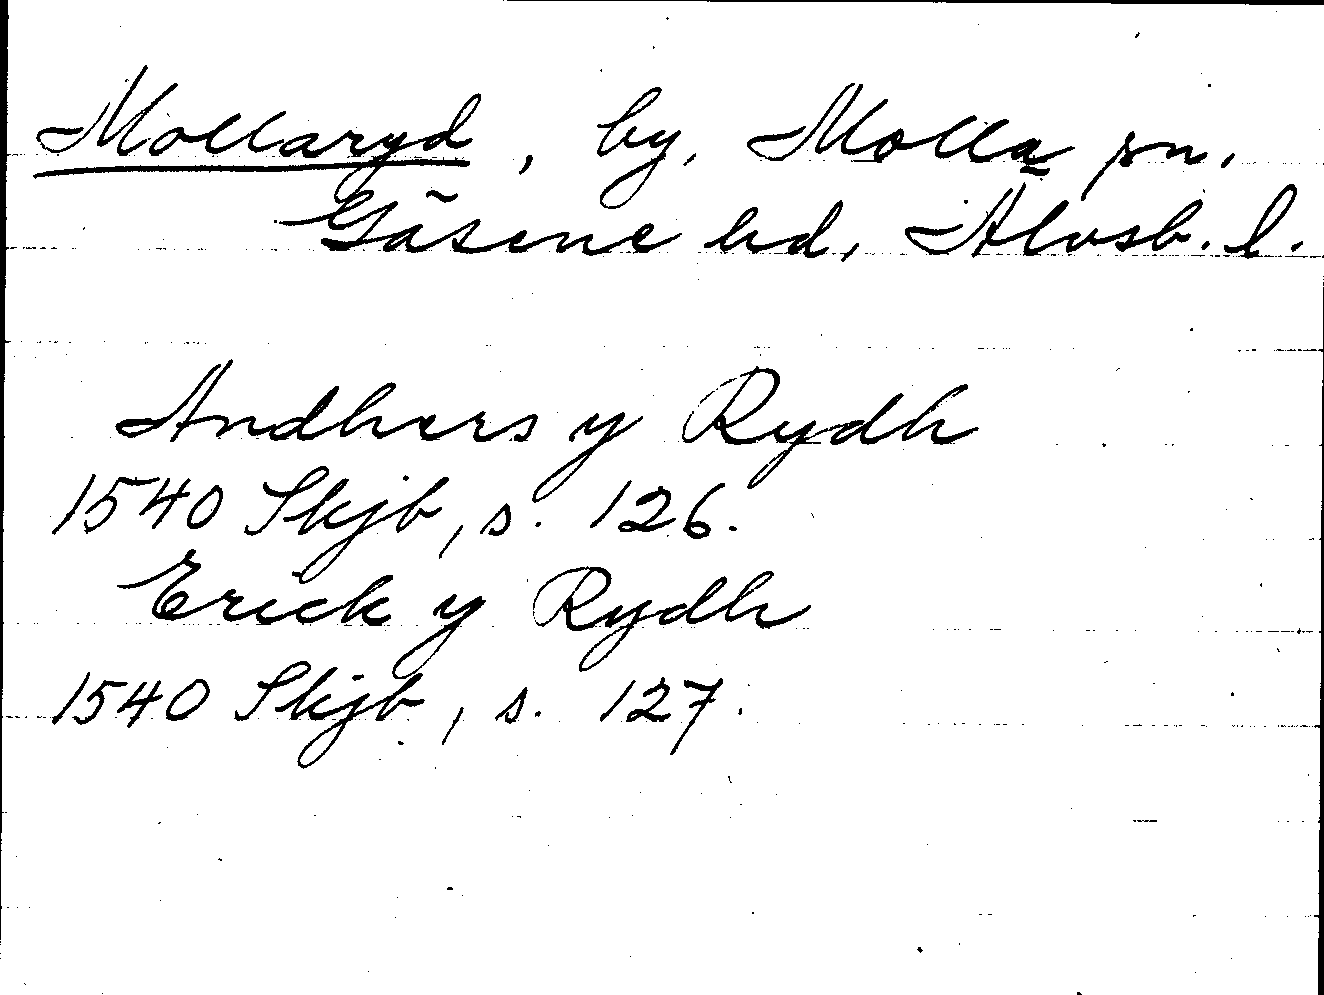 Mollaryd, by, Molla sn.
Gäsene hd, Älvsb. l.
Andhers y Rydh
1540 Skjb, s. 126.
Erick y Rydh
1540 Skjb, s. 127.